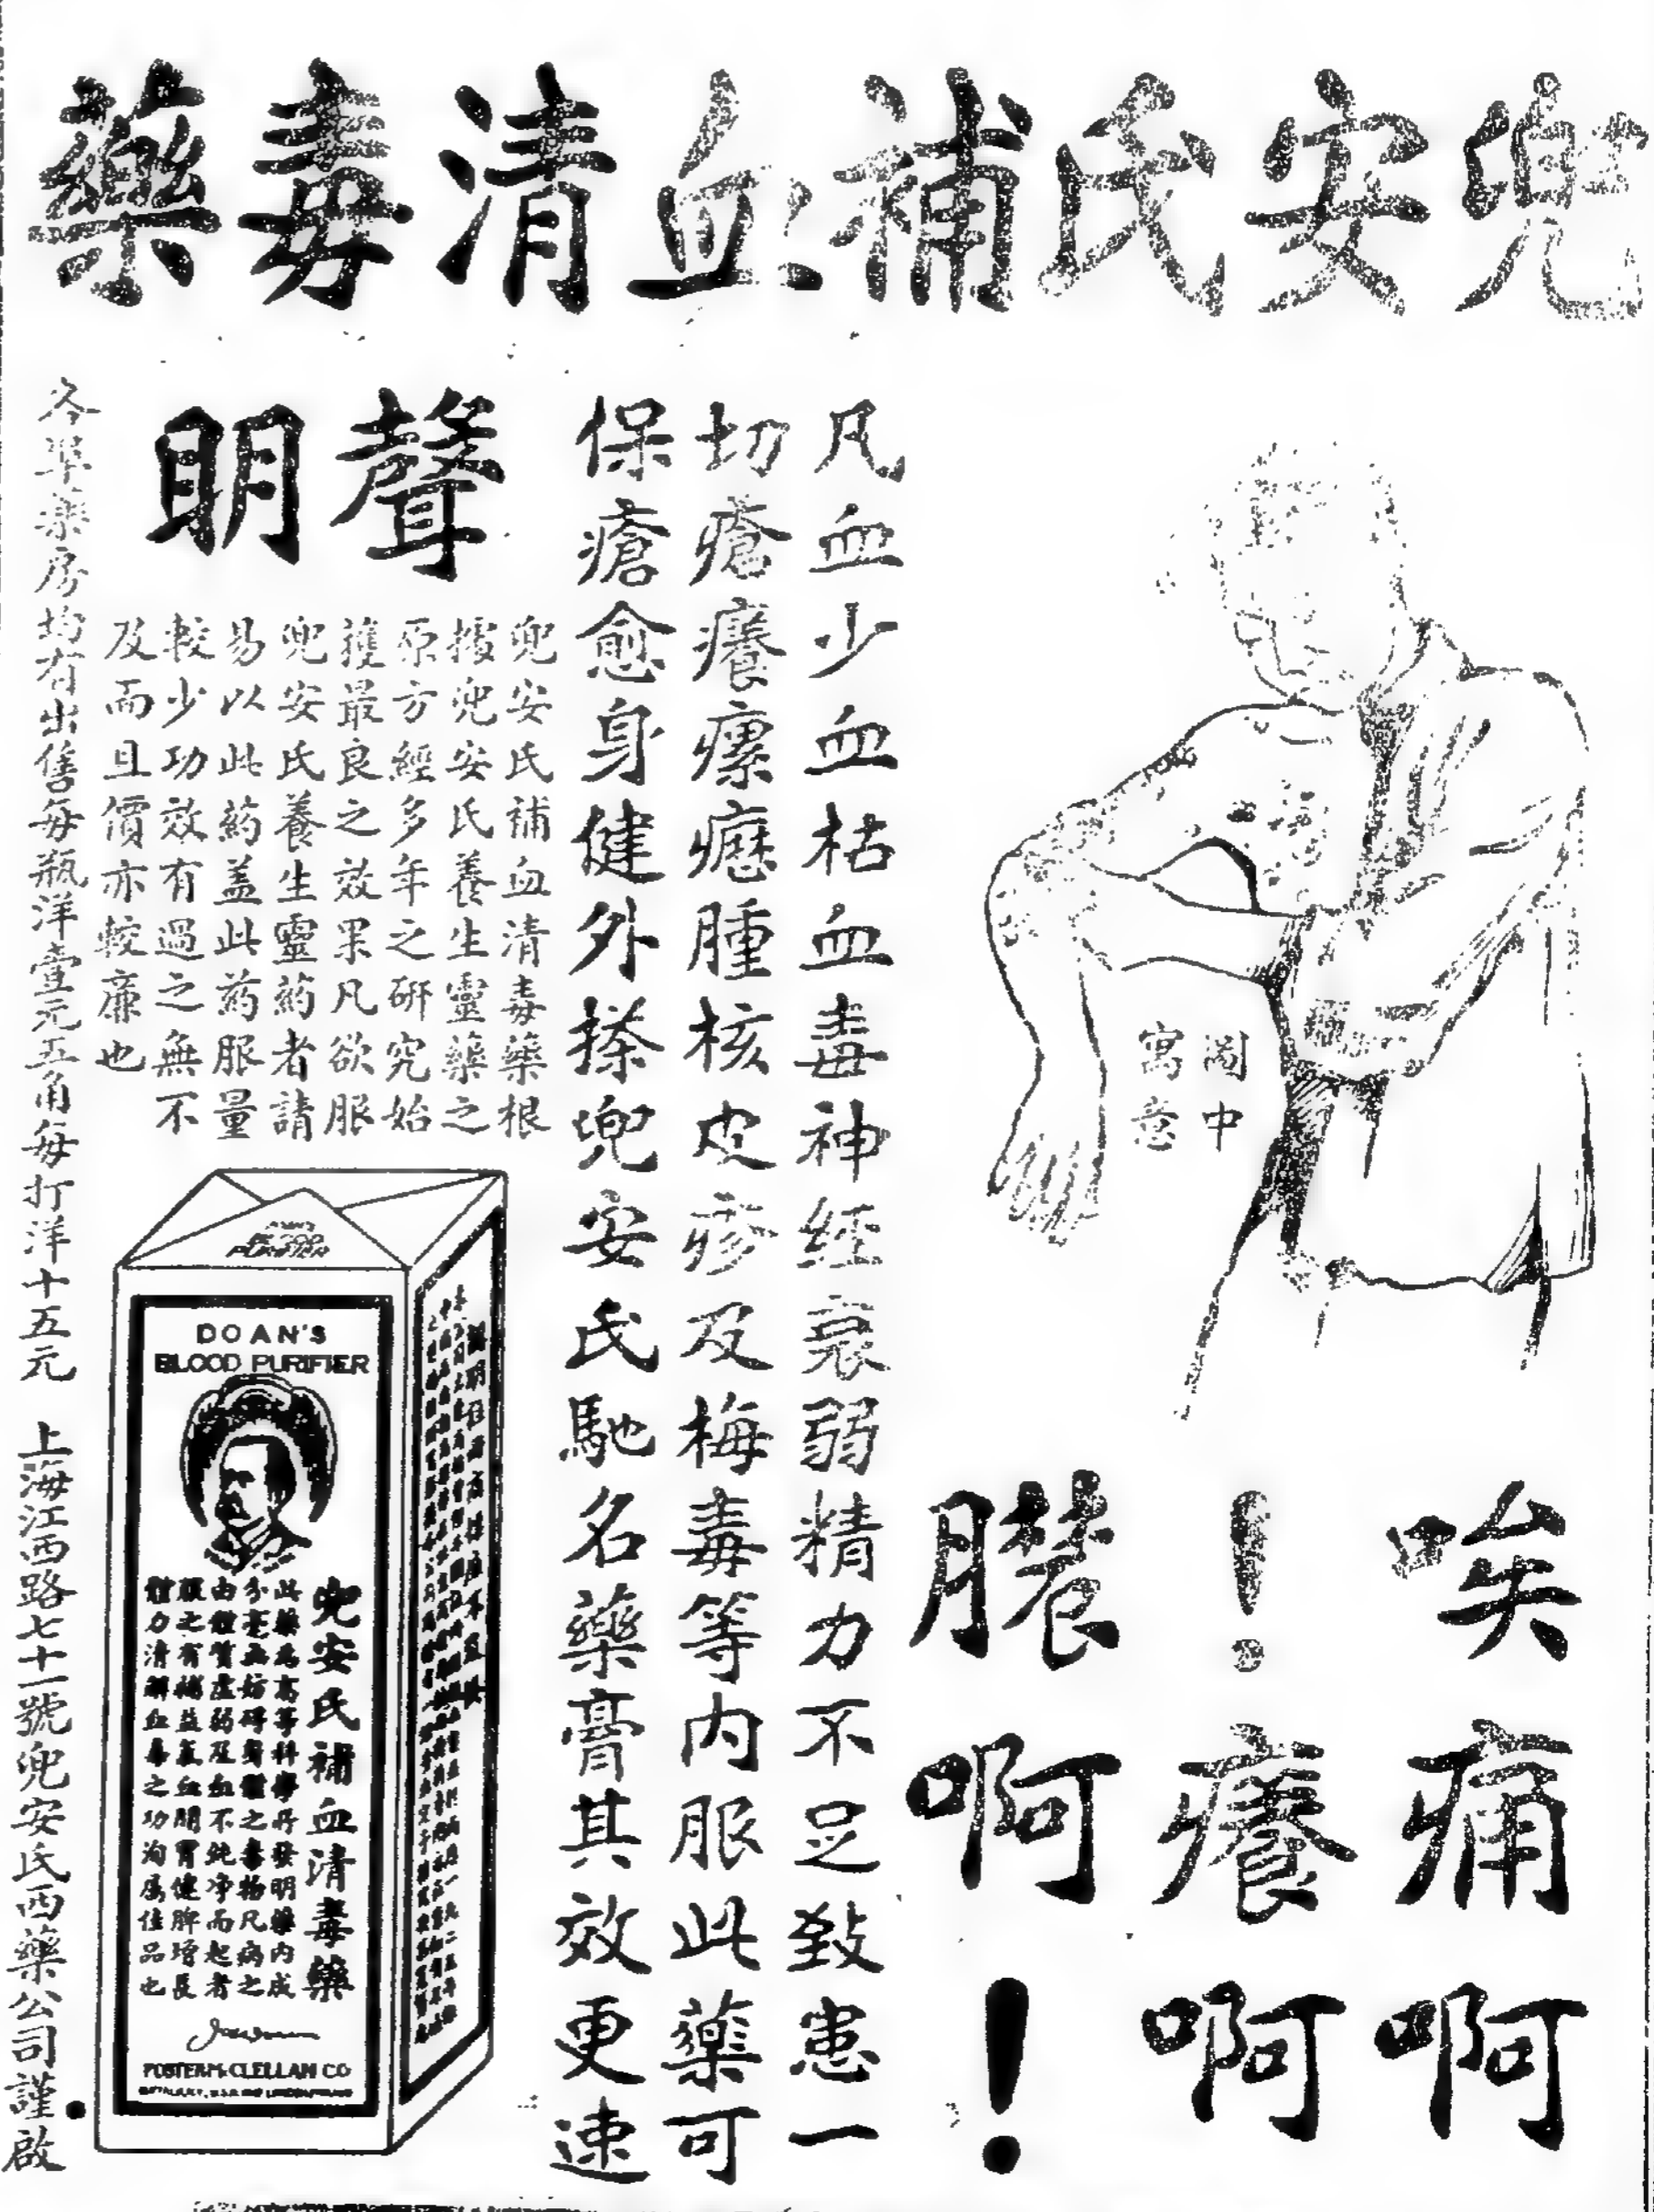 兜安氏補血清毒藥
唉痛啊
！癢啊
膿啊！
圖中
寓意
凡血少血枯血毒神經衰弱精力不足致患一
切瘡癢瘰癧腫核皮疹及梅毒等內服此藥可
保瘡愈身健外搽兜安氏馳名藥膏其效更速
聲明
兜安氏補血清毒藥根
據兜安氏養生靈藥之
原方經多年之研究始
獲最良之效果凡欲服
兜安氏養生靈葯者請
易以此葯蓋此葯服量
較少功效有過之無不
及而且價亦較廉也
BLOOD
PURIFIER
DOAN'S
BLOOD PURIFIER
兜安氏補血清毒藥
此藥為高等科學所發明藥內成
分毫無妨碍身體之毒物凡病之
由體質虛弱及血不純淨而起者
服之有補益氣血開胃健脾增長
體力清解血毒之功洵屬佳品也
FOSTER McCLELLAN CO
各埠藥房均有出售每瓶洋壹元五角每打洋十五元　上海江西路七十一號兜安氏西藥公司謹啟